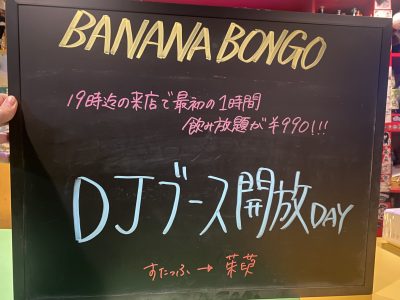 BANANA BONGO
19時迄の来店で最初の1時間
飲み放題が¥990!!!
DJブース開放DAY
すたっふ→茱萸